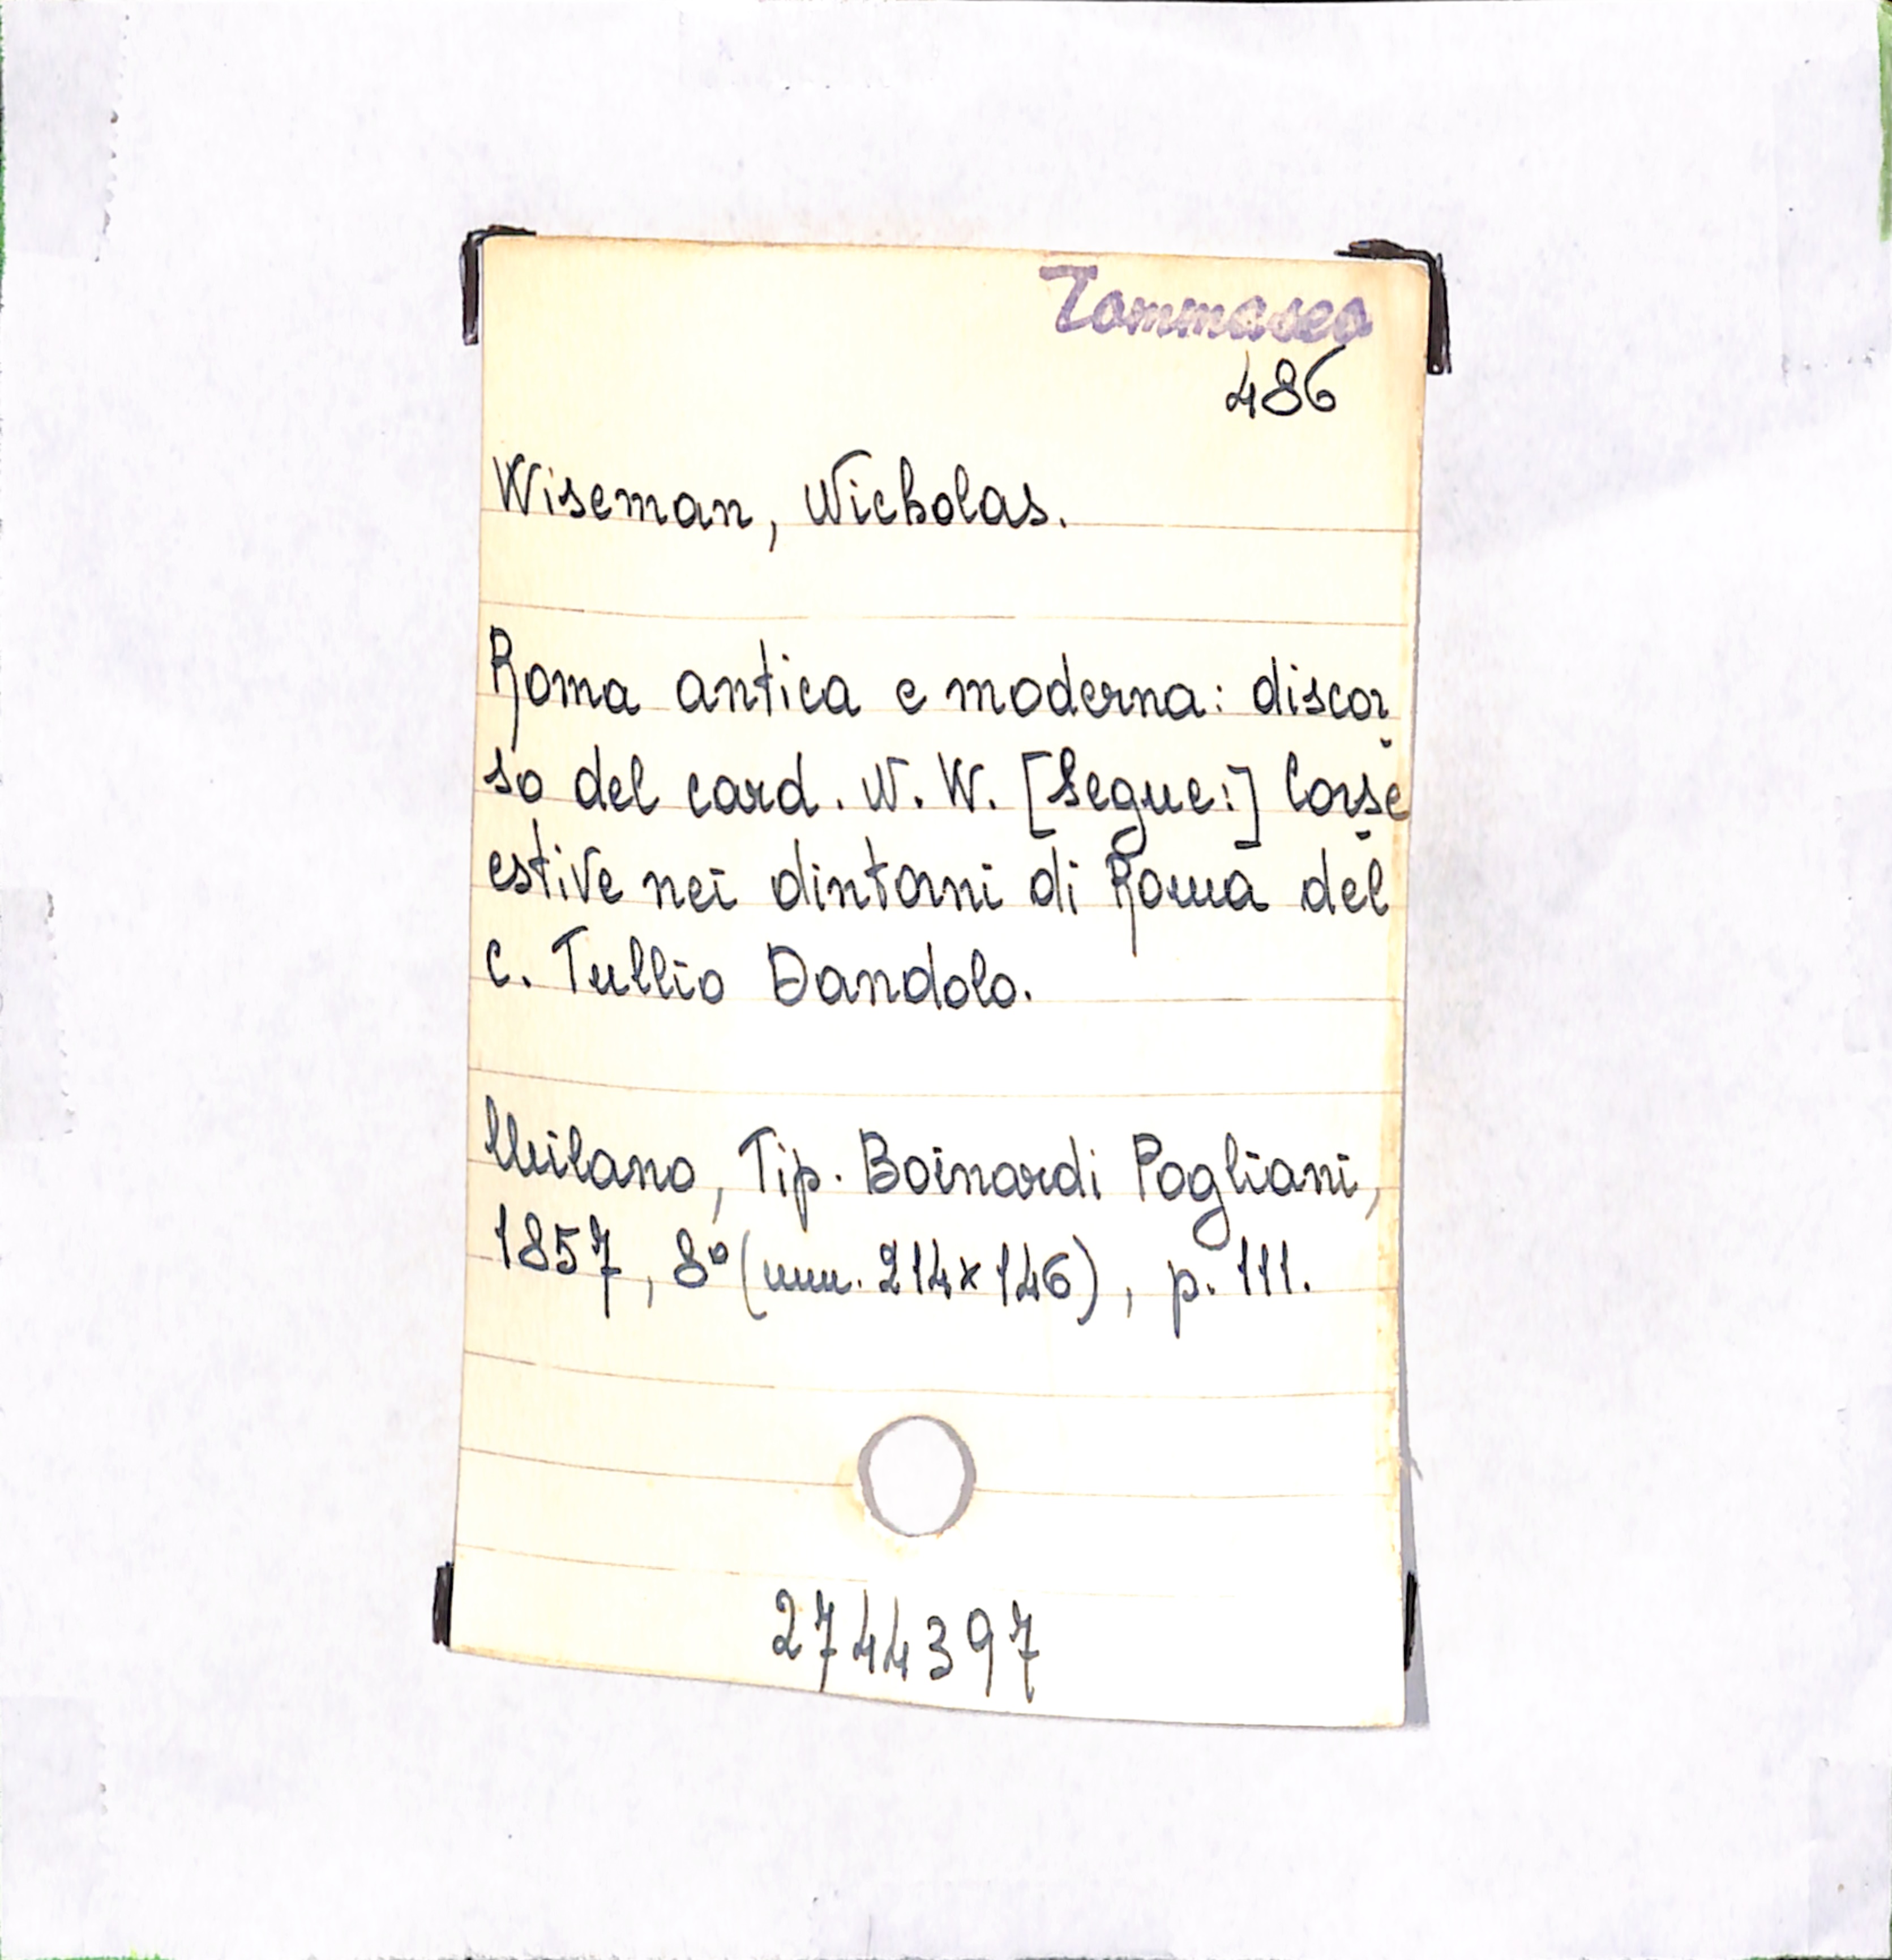 Tommaseo
486
Wiseman, Nicholas.
Roma antica e moderna: discor
so del card. N. W. [Segue:] Corse
estive nei dintorni di Roma del
c. Tullio Dandolo.
Milano, Tip. Boinardi Pogliani,
1857, 8° (mm. 214x146), p. 111.
2744397